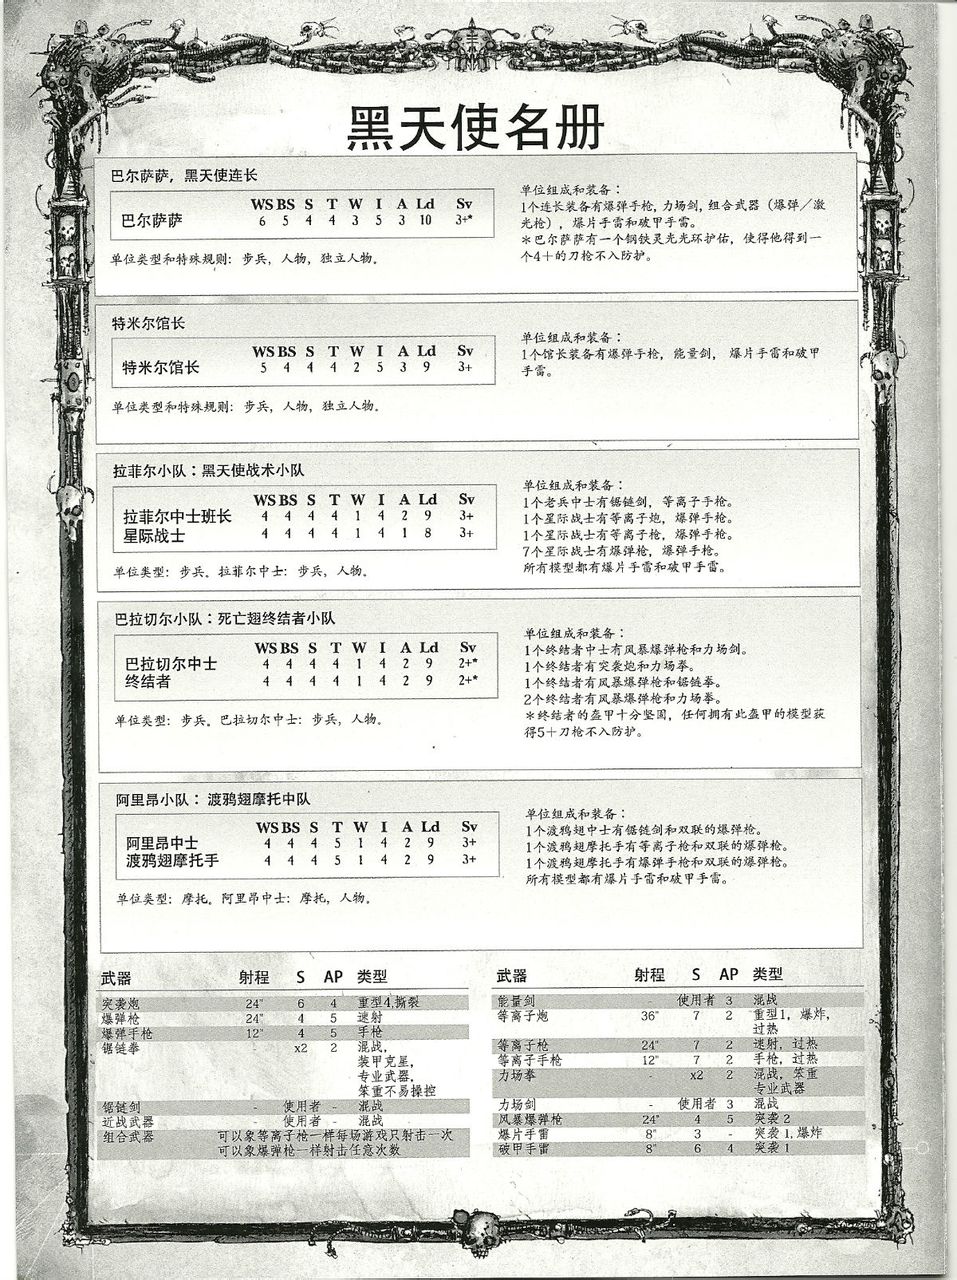 黑天使名册
巴尔萨萨，黑天使连长
WS BS S T W I A Ld Sv
巴尔萨萨 6 5 4 4 3 5 3 10 3+*
单位类型和特殊规则：步兵，人物，独立人物。
单位组成和装备：
1个连长装备有爆弹手枪,力场剑,组合武器（爆弹／激
光枪），爆片手雷和破甲手雷。
＊巴尔萨萨有一个钢铁灵光光环护佑，使得他得到一
个4＋的刀枪不入防护。
特米尔馆长
WS BS S T W I A Ld Sv
特米尔馆长 5 4 4 4 2 5 3 9 3+
单位类型和特殊规则：步兵，人物，独立人物。
单位组成和装备：
1个馆长装备有爆弹手枪，能量剑， 爆片手雷和破甲
手雷。
拉菲尔小队：黑天使战术小队
WS BS S T W I A Ld Sv
拉菲尔中士班长 4 4 4 4 1 4 2 9 3+
星际战士 4 4 4 4 1 4 1 8 3+
单位类型：步兵。拉菲尔中士：步兵，人物。
单位组成和装备：
1个老兵中士有锯链剑，等离子手枪。
1个星际战士有等离子炮，爆弹手枪。
1个星际战士有等离子枪，爆弹手枪。
7个星际战士有爆弹枪，爆弹手枪。
所有模型都有爆片手雷和破甲手雷。
巴拉切尔小队：死亡翅终结者小队
WS BS S T W I A Ld Sv
巴拉切尔中士 4 4 4 4 1 4 2 9 2+*
终结者 4 4 4 4 1 4 2 9 2+*
单位类型：步兵。巴拉切尔中士：步兵，人物。
单位组成和装备：
1个终结者中士有风暴爆弹枪和力场剑。
1个终结者有突袭炮和力场拳。
1个终结者有风暴爆弹枪和锯链拳。
2个终结者有风暴爆弹枪和力场拳。
＊终结者的盔甲十分坚固，任何拥有此盔甲的模型获
得5＋刀枪不入防护。
阿里昂小队：渡鸦翅摩托中队
WS BS S T W I A Ld Sv
阿里昂中士 4 4 4 5 1 4 2 9 3+
渡鸦翅摩托手 4 4 4 5 1 4 2 9 3+
单位类型：摩托。阿里昂中士：摩托，人物。
单位组成和装备：
1个渡鸦翅中士有锯链剑和双联的爆弹枪。
1个渡鸦翅摩托手有等离子枪和双联的爆弹枪。
1个渡鸦翅摩托手有爆弹手枪和双联的爆弹枪。
所有模型都有爆片手雷和破甲手雷。
武器 射程 S AP 类型
突袭炮 24" 6 4 重型4,撕裂
爆弹枪 24" 4 5 速射
爆弹手枪 12" 4 5 手枪
锯链拳 - x2 2 混战，
装甲克星，
专业武器，
笨重不易操控
锯链剑 - 使用者 - 混战
近战武器 - 使用者 - 混战
组合武器 可以象等离子枪一样每场游戏只射击一次
可以象爆弹枪一样射击任意次数
武器 射程 S AP 类型
能量剑 使用者 3 混战
等离子炮 36" 7 2 重型1，爆炸，
过热
等离子枪 24" 7 2 速射，过热
等离子手枪 12" 7 2 手枪，过热
力场拳 - x2 2 混战，笨重
专业武器
力场剑 - 使用者 3 混战
风暴爆弹枪 24" 4 5 突袭 2
爆片手雷 8" 3 - 突袭 1,爆炸
破甲手雷 8" 6 4 突袭 1